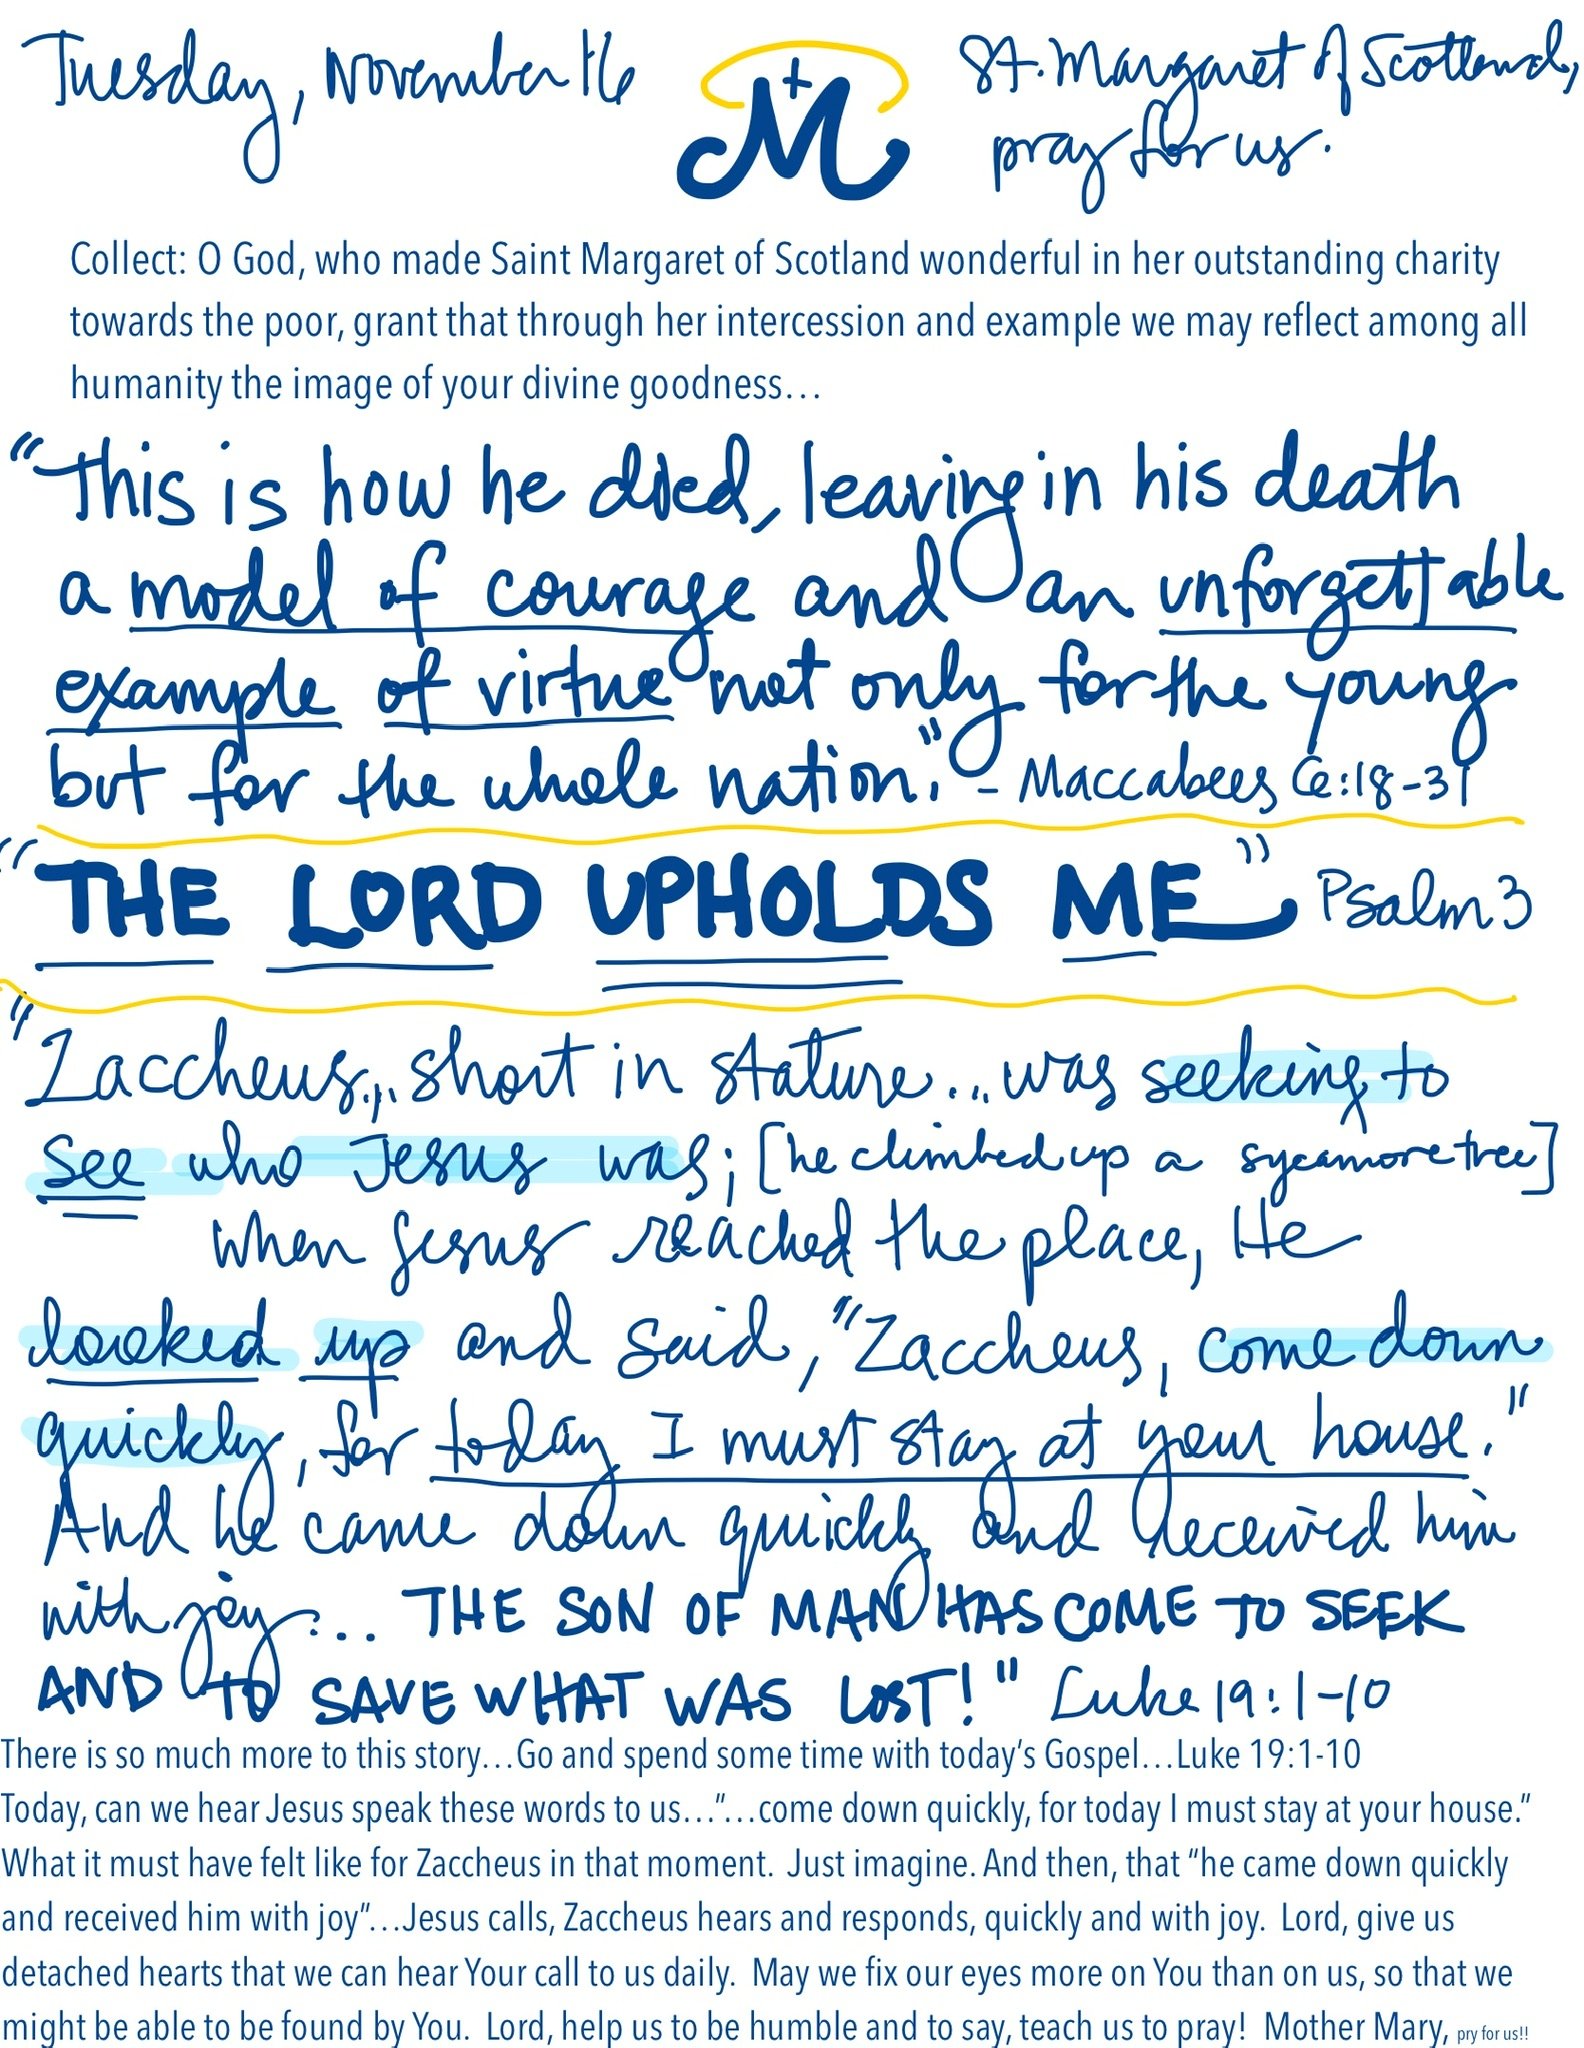 Tuesday, November 16
M
St. Margaret of Scotland,
pray for us.
Collect: O God, who made Saint Margaret of Scotland wonderful in her outstanding charity
towards the poor, grant that through her intercession and example we may reflect among all
humanity the image of your divine goodness...
"This is how he died, leaving in his death
a model of courage and an unforgettable
example of virtue not only for the young
but for the whole nation." - Maccabees 6:18-31
"THE LORD UPHOLDS ME" Psalm 3
"Zaccheus... short in stature... was seeking to
see who Jesus was; [he climbed up a sycamore tree]
when Jesus reached the place, He
looked up and said, "Zaccheus, come down
quickly, for today I must stay at your house."
And he came down quickly and received him
with joy... THE SON OF MAN HAS COME TO SEEK
AND TO SAVE WHAT WAS LOST!" Luke 19:1-10
There is so much more to this story...Go and spend some time with today's Gospel...Luke 19:1-10
Today, can we hear Jesus speak these words to us..."...come down quickly, for today I must stay at your house."
What it must have felt like for Zaccheus in that moment. Just imagine. And then, that "he came down quickly
and received him with joy"...Jesus calls, Zaccheus hears and responds, quickly and with joy. Lord, give us
detached hearts that we can hear Your call to us daily. May we fix our eyes more on You than on us, so that we
might be able to be found by You. Lord, help us to be humble and to say, teach us to pray! Mother Mary, pry for us!!